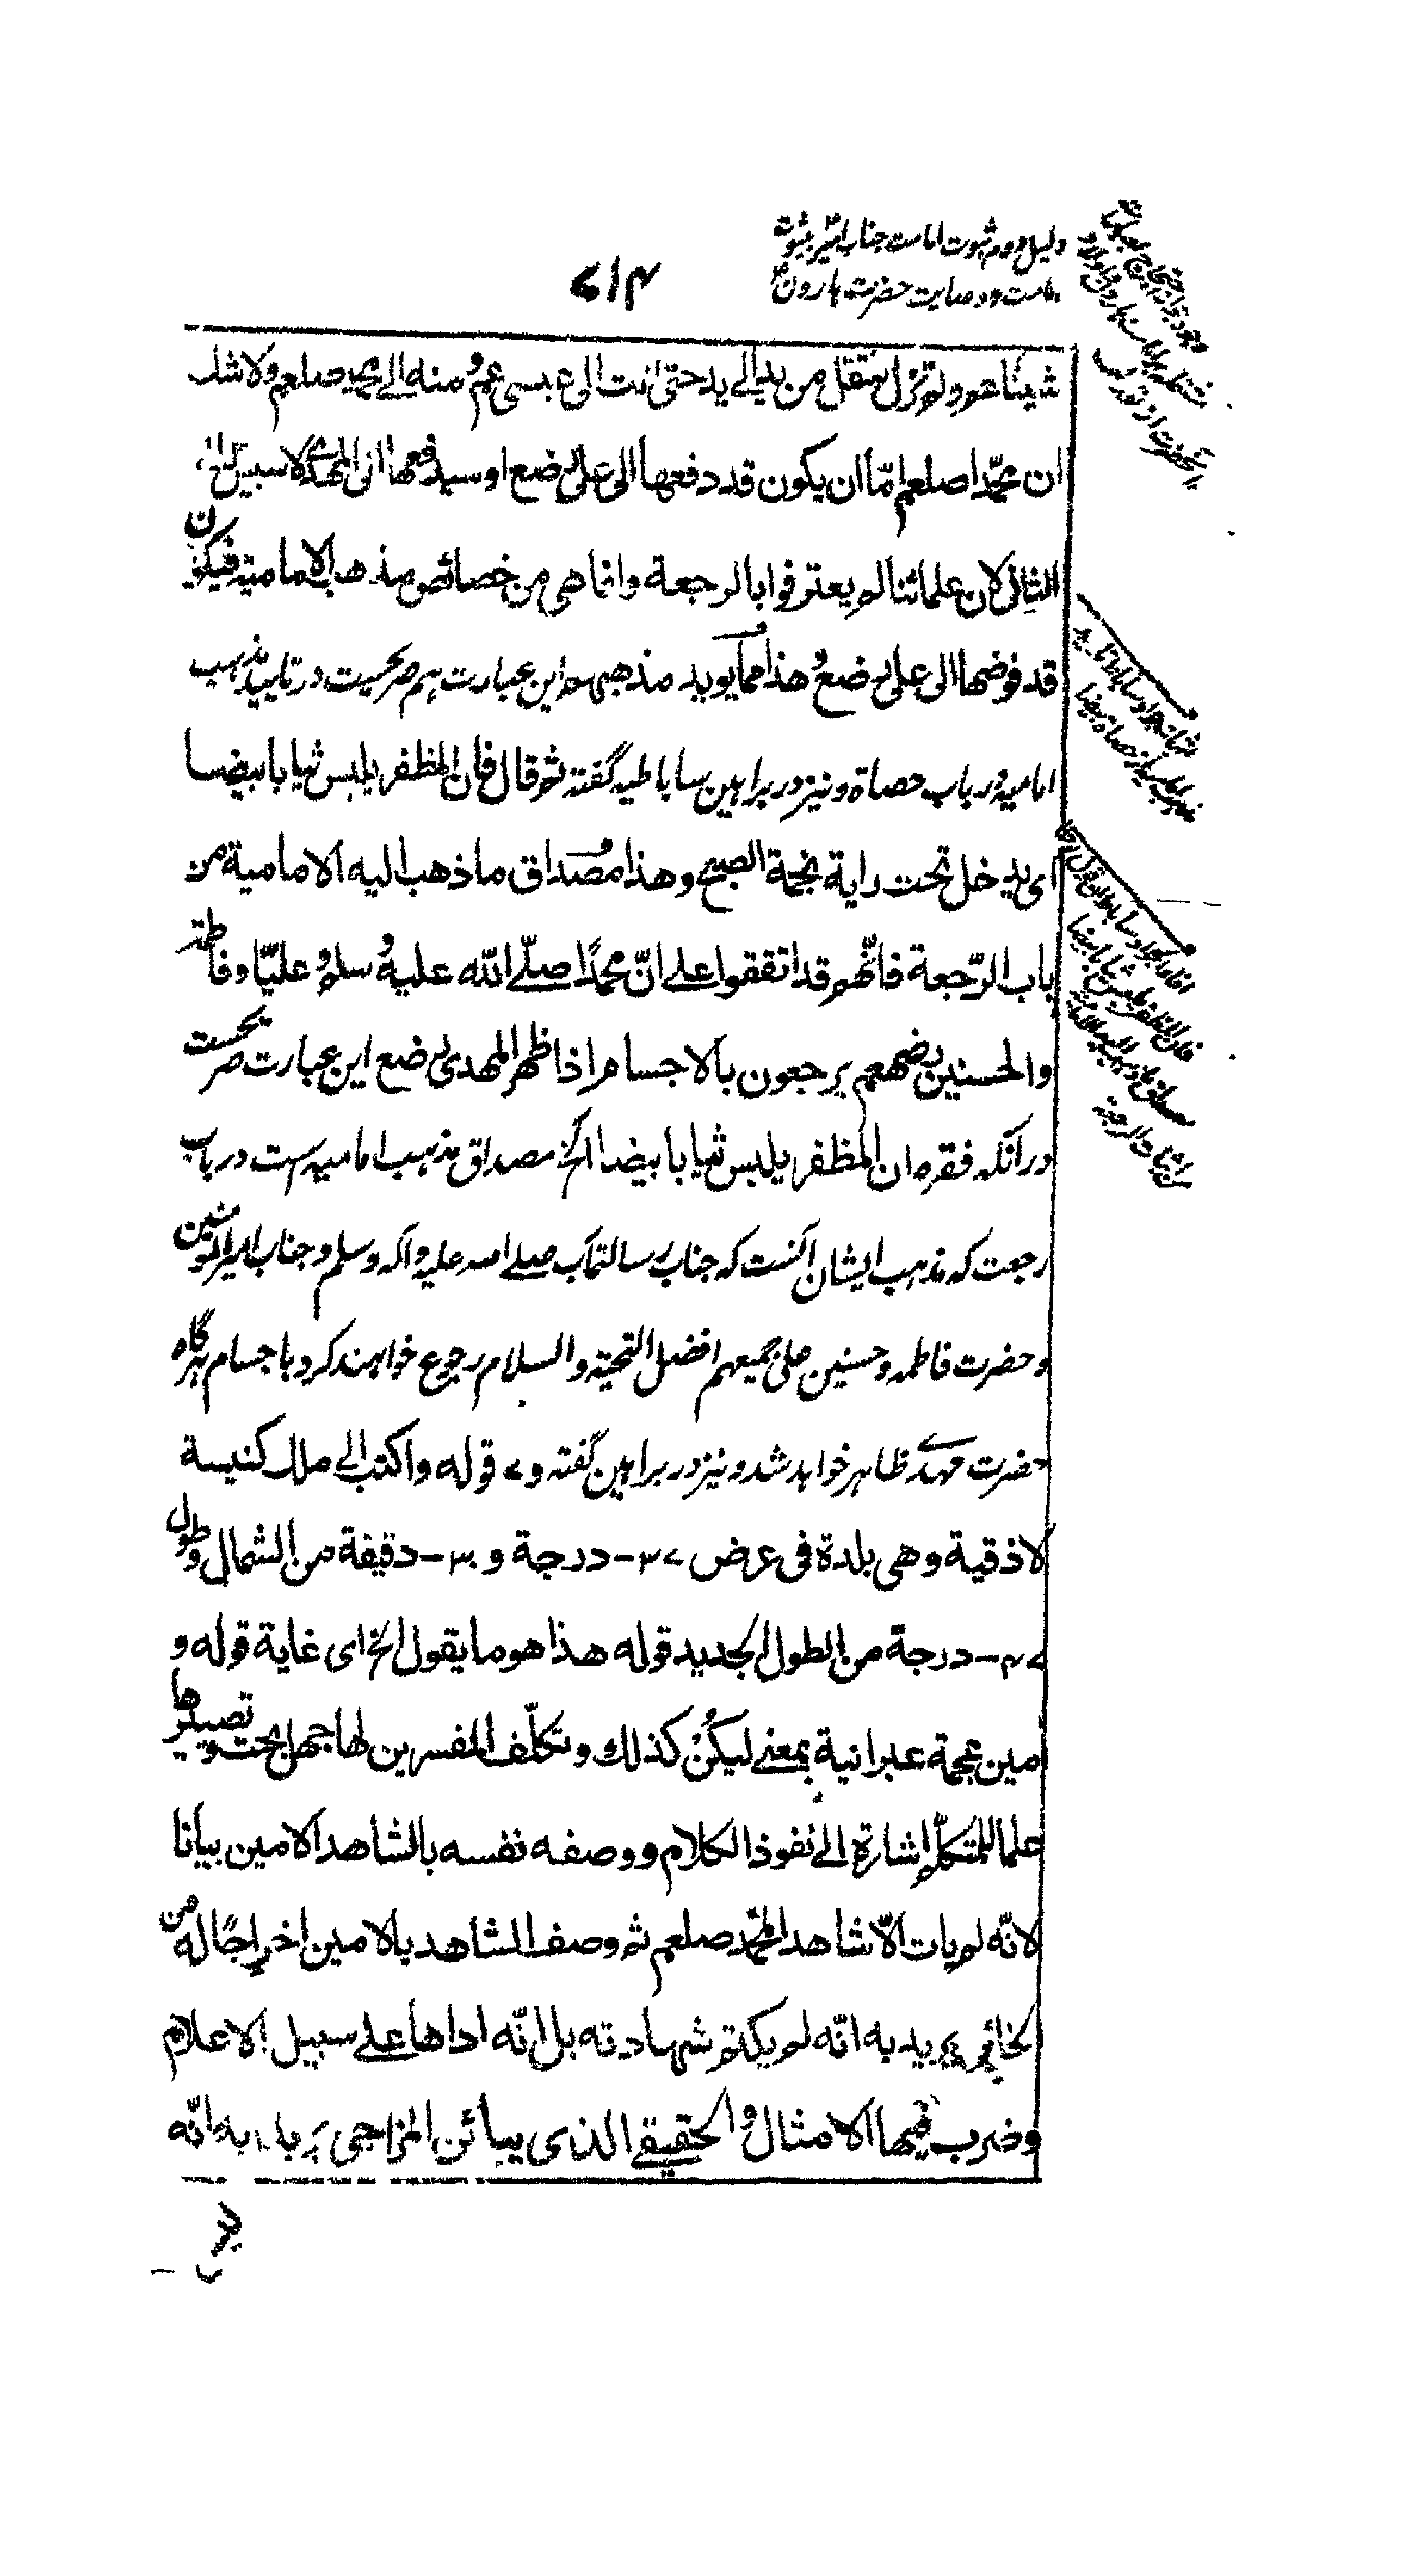 دلیل دوم ثبوت امامت جناب امیر بثبوت
امامت و وصایت حضرت هارون
۷۱۴
شیئا عم ولم تزل تنتقل من ید الی ید حتی انت الی عیسی عم ومنه الی محمد صلعم ولا شک
ان محمدا صلعم امّا ان یکون قد دفعها الی علی رضع او سیدفعها الی المهدی لا سبیل الی
الثانی لان علمائنا لم یعترفوا بالرجعة وانما هی من خصائص مذهب الامامیة فیکون
قد فوضها الی علی رضع وهذا مما یوید مذهبهم این عبارت هم صریحست در تایید مذهب
امامیه در باب حصاة و نیز در براهین ساباطیه گفته ثم قال فان المظفر یلبس ثیابا بیضا
ای یدخل تحت رایة نجمة الصبح وهذا مصداق ما ذهب الیه الامامیة من
باب الرّجعة فانّهم قد اتفقوا علی انّ محمدًا صلّی الله علیه وسلم وعلیّا وفاطمة
والحسنین رضهم یرجعون بالاجسام اذا ظهر المهدی رضع این عبارت صریحست
در آنکه فقره ان المظفر یلبس ثیابا بیضا الخ مصداق مذهب امامیه است در باب
رجعت که مذهب ایشان آنست که جناب رسالتمآب صلی الله علیه وآله وسلم و جناب امیرالمومنین
و حضرت فاطمه و حسنین علی جمیعهم افضل التحیة والسلام رجوع خواهند کرد با جسام هرگاه
حضرت مهدی ظاهر خواهد شد و نیز در براهین گفته و۷ قوله واکتب الی ملک کنیسة
لاذقیة وهی بلدة فی عرض ۳۷- درجة و ۳۰- دقیقة من الشمال وطول
۴۷- درجة من الطول الجدید قوله هذا هو ما یقول الخ ای غایة قوله و
امین عجمة عبرانیة بمعنی لیکُنْ کذلك وتکلّف المفسرین لها جهل بحت وتصییرها
علما للمتکلّم اشارة الی نفوذ الکلام ووصفه نفسه بالشاهد الامین بیانا
لانّه لم یات الّا شاهدا لمحمد صلعم ثم وصف الشاهد بالامین اخراجًا له من
الخائن یرید به انّه لم یکتم شهادته بل انّه اداها علی سبیل الاعلام
وضرب فیها الامثال والحقیقی الذی یبائن المزاجی یرید به انّه